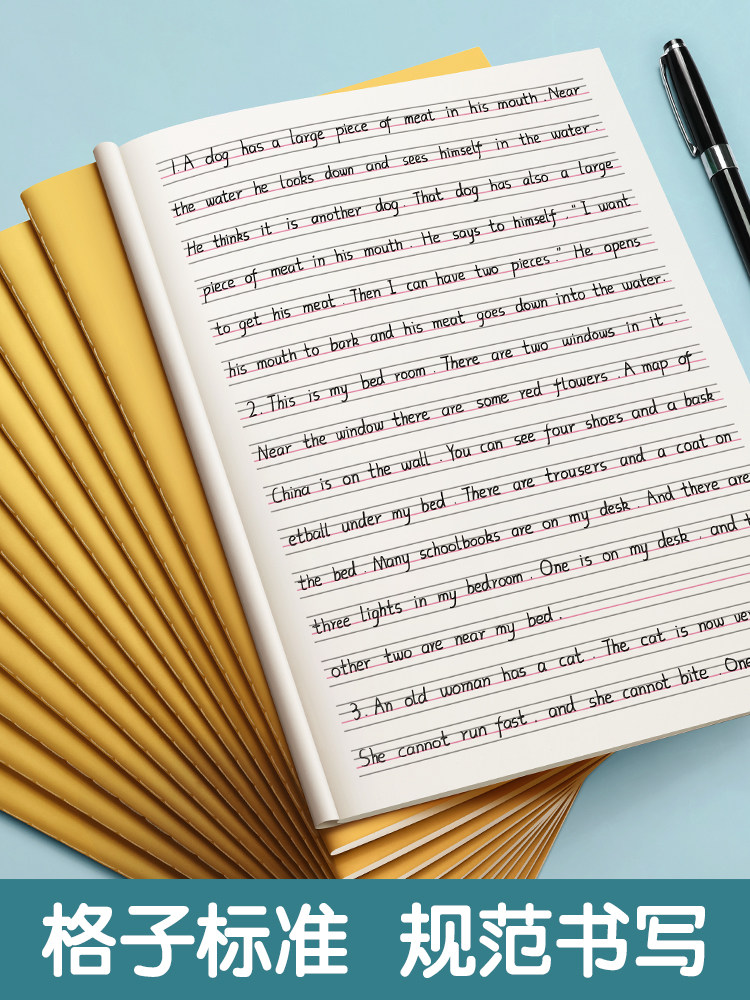 1. A dog has a large piece of meat in his mouth. Near
the water he looks down and sees himself in the water.
He thinks it is another dog. That dog has also a large
piece of meat in his mouth. He says to himself." I want
to get his meat. Then I can have two pieces." He opens
his mouth to bark and his meat goes down into the water.
2. This is my bed room. There are two windows in it.
Near the window there are some red flowers. A map of
China is on the wall. You can see four shoes and a bask
etball under my bed. There are trousers and a coat on
the bed. Many schoolbooks are on my desk. And there are
three lights in my bedroom. One is on my desk, and t
other two are near my bed.
3. An old woman has a cat. The cat is now ve
She cannot run fast, and she cannot bite. One
格子标准 规范书写